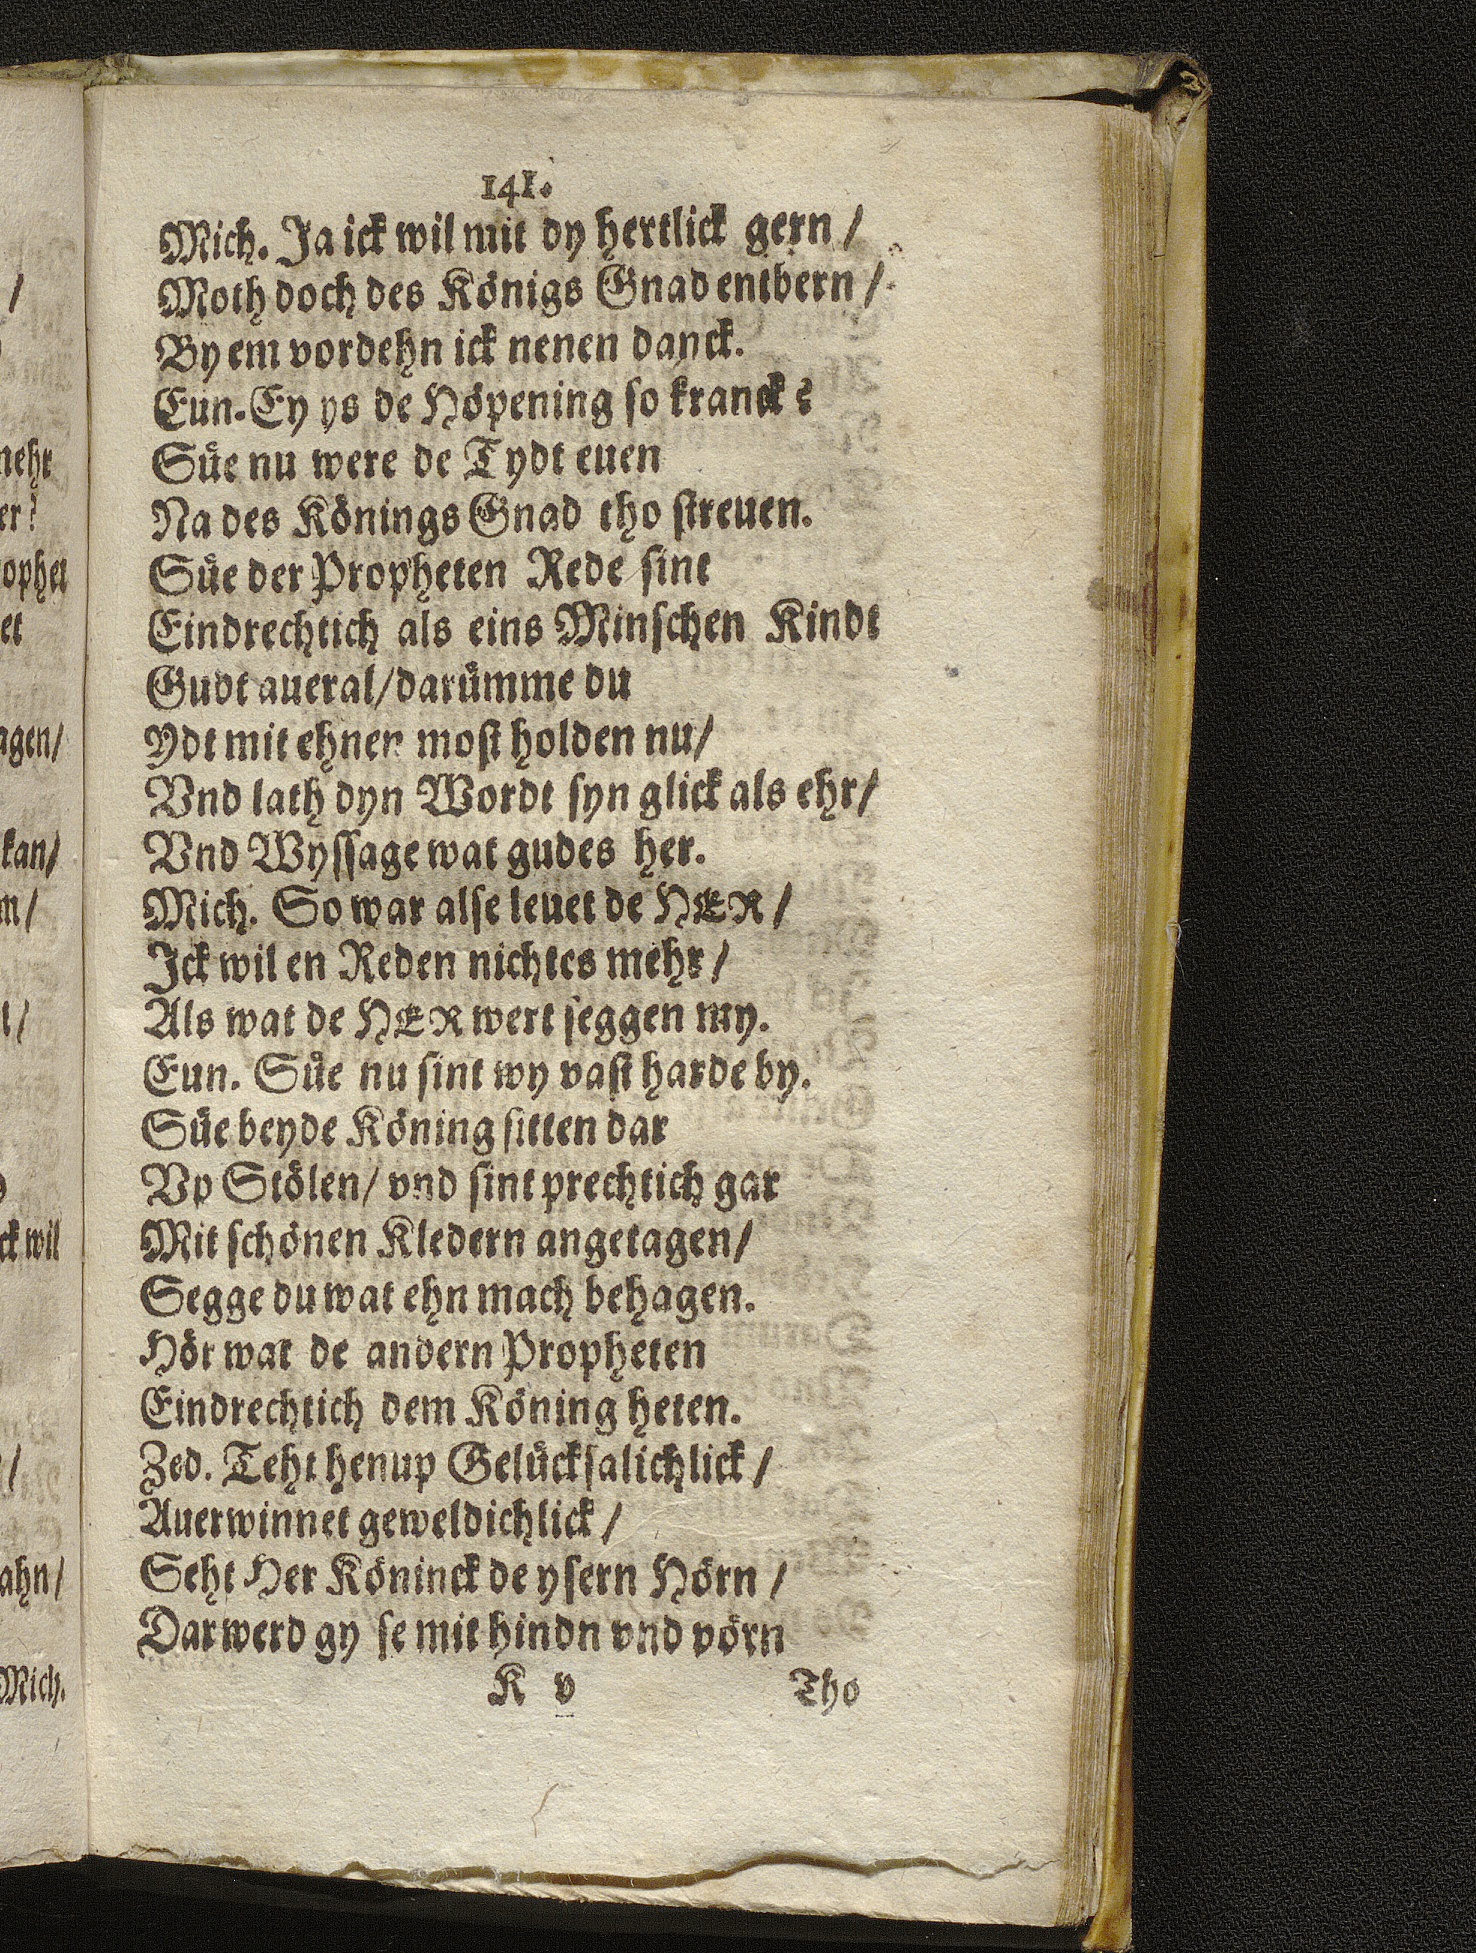 141.
Mich. Ja ick wil mit dy hertlick gern /
Moth doch des Königs Gnad entbern /
By em vordehn ick nenen danck.
Eun. Ey ys de Höpening so kranck?
Süe nu were de Tydt euen
Na des Könings Gnad tho streuen.
Süe der Propheten Rede sint
Eindrechtich als eins Minschen Kindt
Gudt aueral/ darümme du
Ydt mit ehnen most holden nu/
Vnd lath dyn Wordt syn glick als ehr/
Vnd Wyssage wat gudes her.
Mich. So war alse leuet de HER /
Ick wil en Reden nichtes mehr /
Als wat de HER wert seggen my.
Eun. Süe nu sint wy vast harde by.
Süe beyde Köning sitten dar
Vp Stölen/ vnd sint prechtich gar
Mit schönen Kledern angetagen/
Segge du wat ehn mach behagen.
Hör wat de andern Propheten
Eindrechtich dem Köning heten.
Zed. Teht henup Gelücksalichlick /
Auerwinnet geweldichlick /
Seht Her Köninck de ysern Hörn /
Dar werd gy se mit hindn vnd vörn
K v
Tho